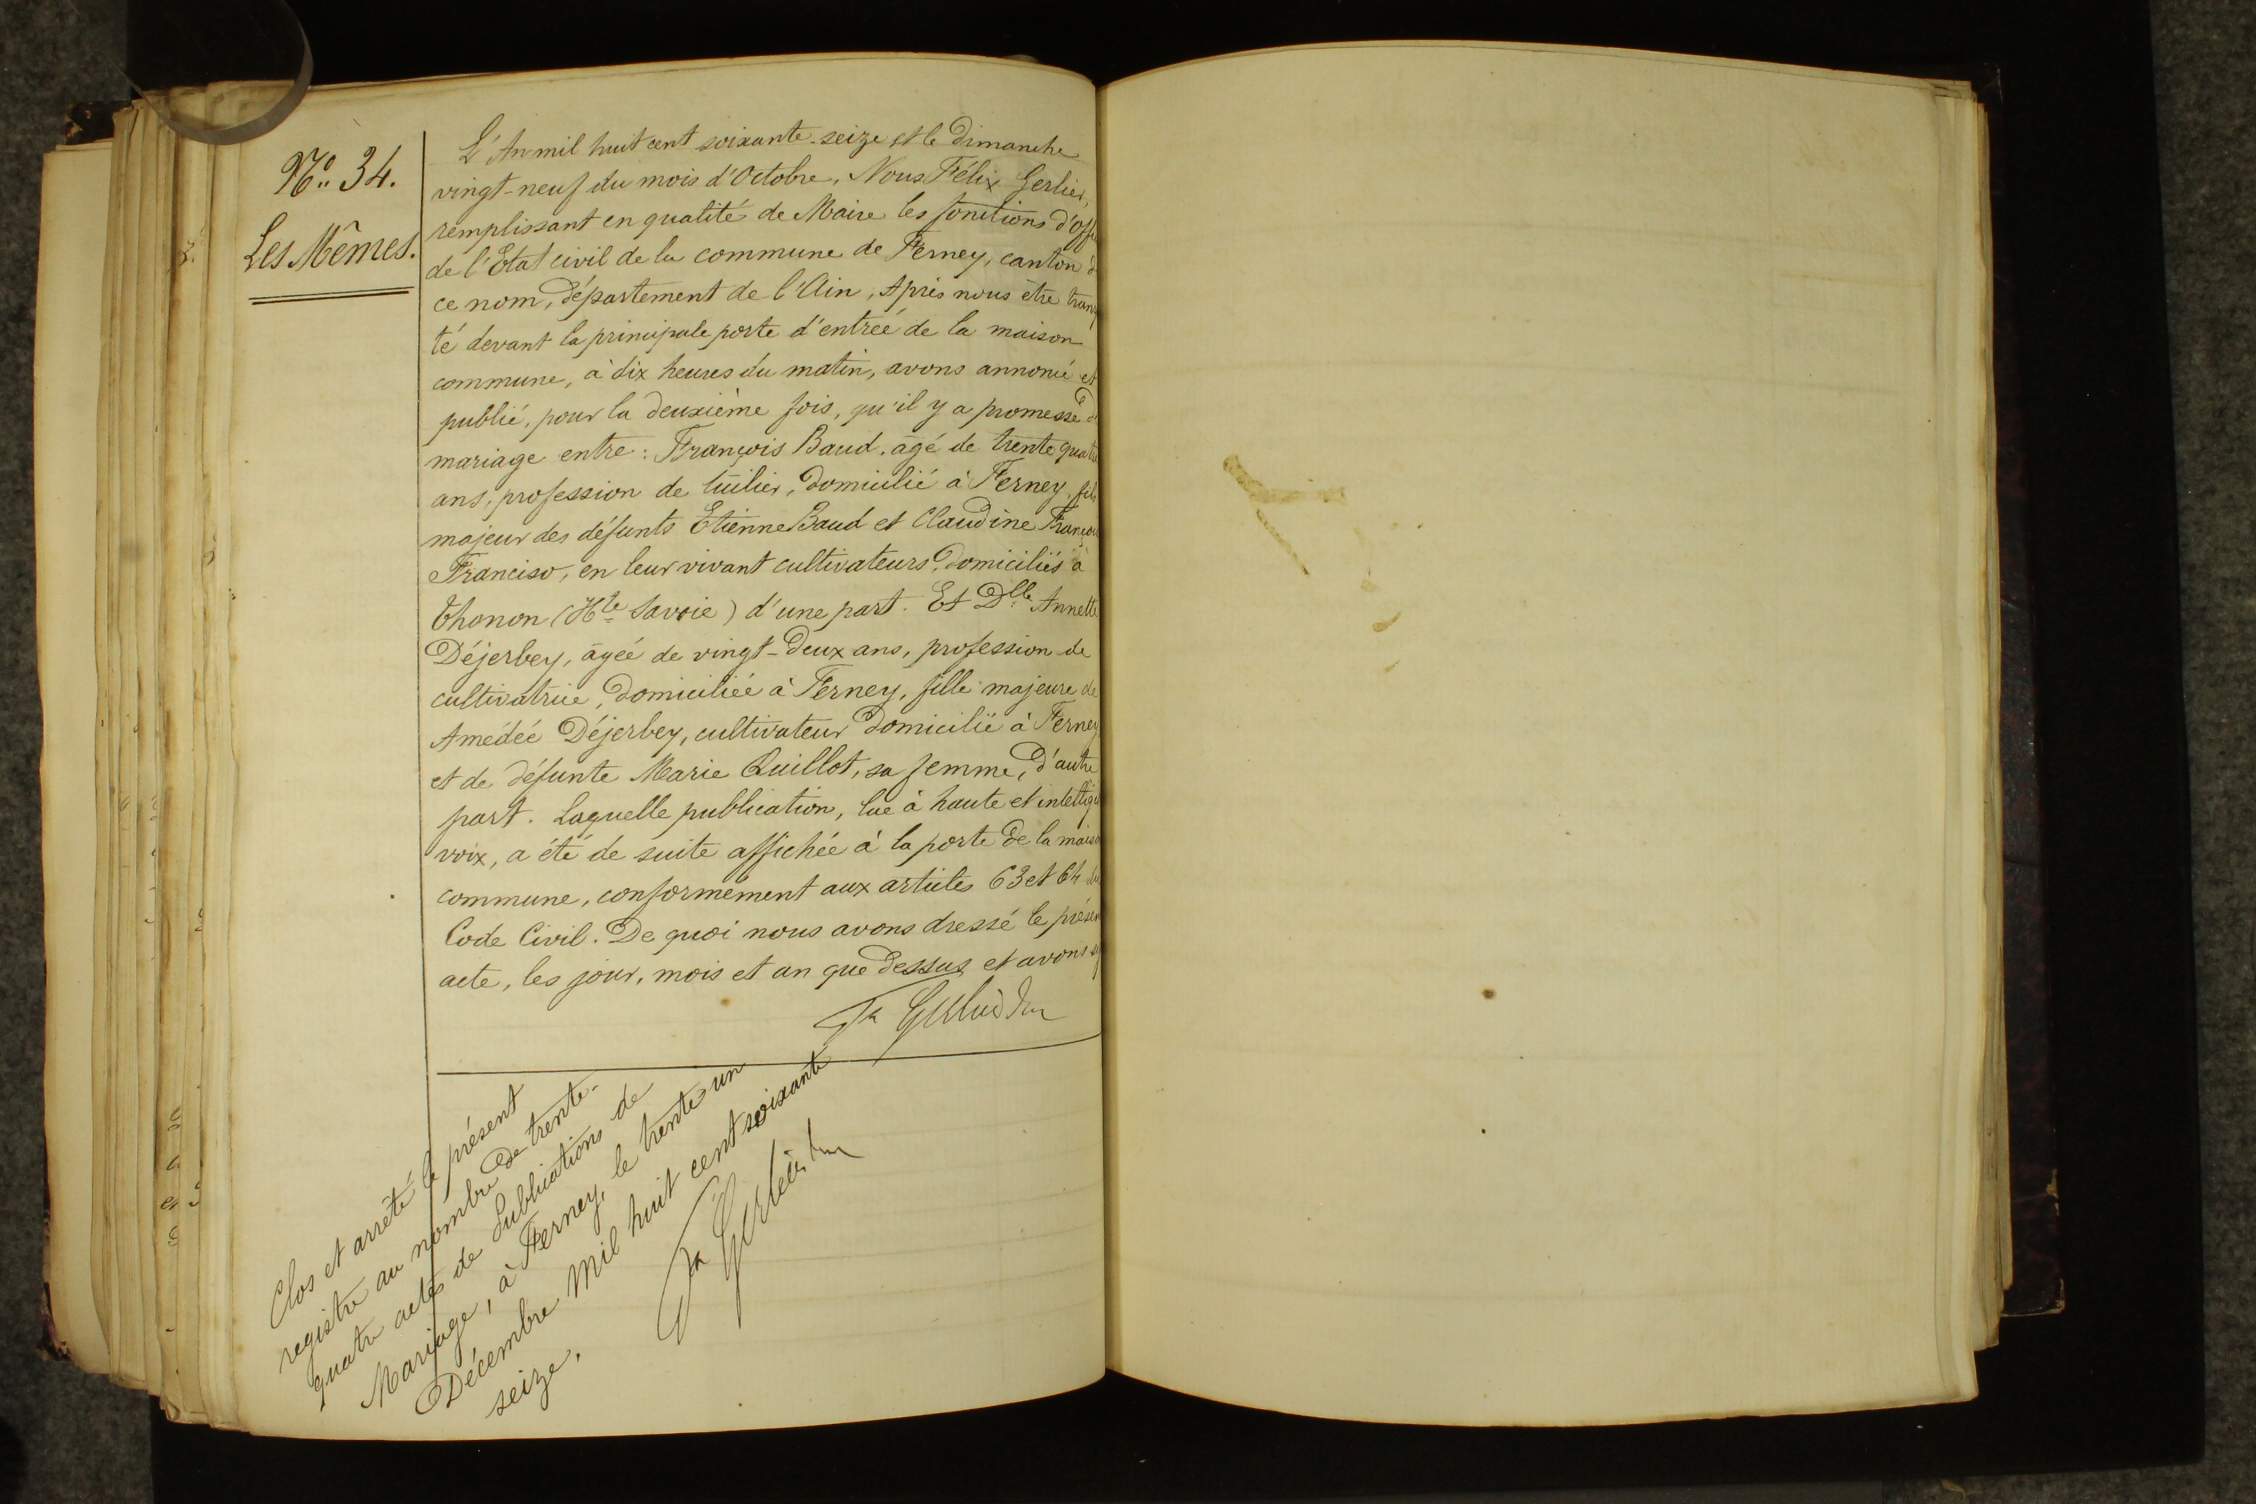 No. 34.
Les Mêmes.
L'An mil huit cent soixante-seize et le dimanche
vingt-neuf du mois d'Octobre, Nous Félix Gerlier,
remplissant en qualité de Maire les fonctions d'Offi
de l'Etat civil de la commune de Ferney, canton d
ce nom, département de l'Ain, Après nous être transp
té devant la principale porte d'entrée de la maison
commune, à dix heures du matin, avons annoncé et
publié, pour la deuxième fois, qu'il y a promesse d
mariage entre : François Baud, âgé de trente quatre
ans, profession de tuilier, domicilié à Ferney, fils
majeur des défunts Etienne Baud et Claudine Françoi
Franciso, en leur vivant cultivateurs, domiciliés à
Thonon (Hte Savoie) d'une part. Et Dlle Annette
Déjerbey, âgée de vingt-deux ans, profession de
cultivatrice, domiciliée à Ferney, fille majeure de
Amédée Déjerbey, cultivateur domicilié à Ferney
et de défunte Marie Quillot, sa femme, d'autre
part. Laquelle publication, lue à haute et intelligi
voix, a été de suite affichée à la porte de la maiso
commune, conformément aux articles 63 et 64 du
Code Civil. De quoi nous avons dressé le présen
acte, les jour, mois et an que dessus et avons si
Fx Gerlier
Clos et arrêté le présent
registre au nombre de trente-
quatre actes de Publications de
Mariage, à Ferney, le trente un
Décembre Mil huit cent soixante
seize.
Fx Gerlier